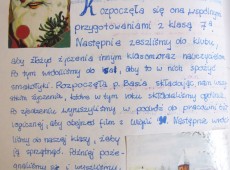 Rozpoczęła się ona wspólnym
przygotowaniami z klasą 7
Następnie zeszliśmy do klubu,
aby złożyć życzenia innym klasom oraz nauczycielom.
Po tym wróciliśmy do sal, aby to w nich spożyć
smakołyki. Rozpoczęła p. Basia, składając nam
życzenia, które w tym roku
Po wyruszyliśmy w podróż do pracowni
logicznej, aby obejrzeć film z
liśmy do naszej klasy, żeby
ją sprzątnąć. Później poże-
gnaliśmy się i wyszliśmy